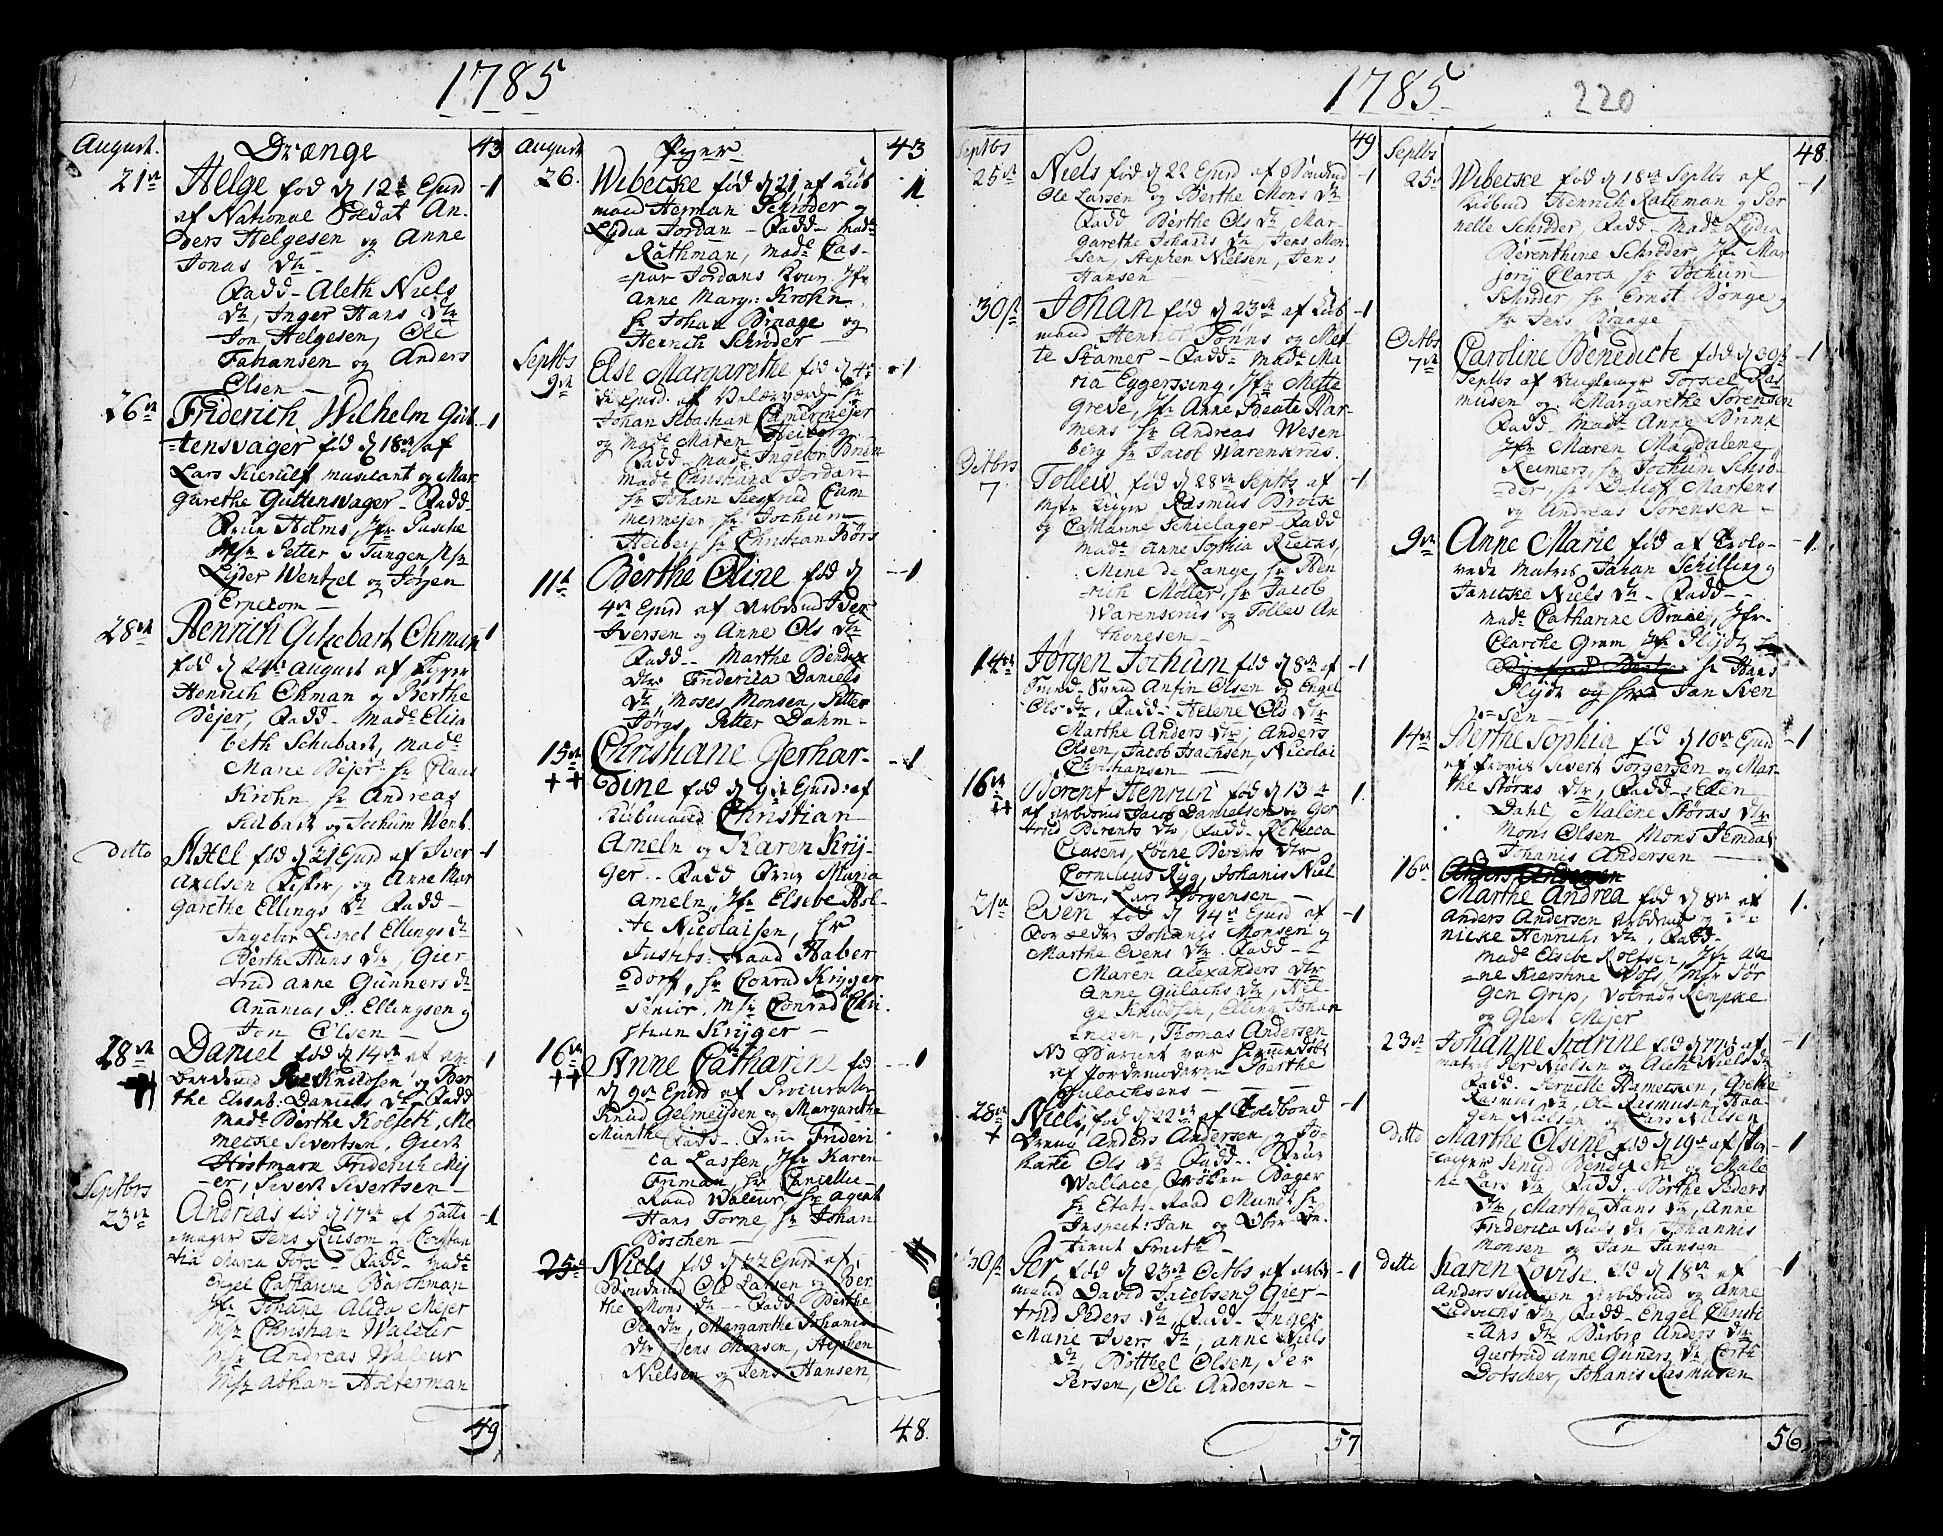 1785
August.
Drænge
43
21de
Helge fød d 12te Ejusd
1
af National Soldat An-
ders Helgesen og Anne
Jonas Dtr
Fadd- Aleth Niels
Dtr, Inger Hans Dtr
Jon Helgesen, Ole
Fabiansen og Anders
Olsen
26de
Friderich Wilhelm Gut-
1
tensvager fød d 18de af
Lars Kierulf musicant og Mar
garethe Guttensvager Fadd-
Holms, Jfr
Petter v Tangen,
Lyder Wentzel og Jørgen
28de
Henrich Gitzebart Ohman
1
fød d 24de August af
Henrich Ohman og Berthe
Bejer, Fadd- Made Elisa
beth Schubart, made
Marie Bejer hr Claus
Krohn hr Andreas
og Jochum Went
ditto
Axel fød d 21 Ejusd af Iver
1
Axelsen Fisker, og Anne Mar
garethe Ellings Dtr Fadd-
Ingebor Lispet Ellings dr
Berthe Hans Dtr, Gier
trud Anne Gunners dr
Ananias P. Ellingsen og
Jon Olsen
28de
Daniel fød d 14de af
1
Knudsen og Ber
the Elisab: Daniels Dtr Fadd
made Berthe
Sivertsen, Giert
Høstmark Friderich Mej
er, Sivert Sivertsen
Septbrs
23de
Andreas fød d 17de af
1
mager Jens Rusom og
Maria Fadd- made
Engel Catharine Barthman
Jfr Johane Alida Mejer
Msr Christian
Msr Andreas
Msr Abham Holterman
49
August
Piger
43
26.
Wibecke fød d 21 af Kiøb
1
mand Herman Schrøder og
Lydia Jordan Fadd- made
Rathman, made Cas-
par Jordans Jfr
Anne Marg: Krohn
hr Johan og
Henrich Schrøder
Septbs
9de
Else Margarethe fød d 4de
1
Ejusd. af
Johan Sebastian Cammermejer
og made Maren Heiberg
Fadd- made Ingebor
made Christiana Jordan
hr Johan Siegfried Cam
mermejer hr Jochum
Heiberg hr Christian Børs
11te
Berthe Oline fød d
1
4de Ejusd af Iver
Iversen og Anne Ols Dtr
Fadd- Marthe
Dtr Friderica Daniels
Dtr, Moses Monsen, Petter
Jørgs, Petter Dahm
15de
++
Christiane Gerhar-
1
dine fød d Ejusd: af
Kiøbmand Christian
Ameln og Karen Krÿ-
ger Fadd Maria
Ameln, Jfr Elsebe Bol-
te Nicolaisen, hr
Justits: Raad Haber
dorf, hr Conrad Krÿger
Senior, Msr Conrad Chri-
stian Krÿger
16de
++
Anne Catharine fød
1
d 9de Ejusd af Procurator
Knud Gelmeyden og Margarethe
Munthe Fadd- Frideri
ca Lassen, Jfr Karen
Friman, hr Cancellie
Raad Waleur, hr Agent
Hans Torne, hr Johan
Boschen
25de
Niels fød d 22 Ejusd af
Ole Larsen og Ber
the Mons Dtr Fadd- Berthe
Ols dtr, Margarethe Johanis
Dtr, Jens Monsen,
Nielsen og Jens Hansen
48.
1785
220
Septbs
49
25de
Niels fød d 22 Ejusd af
1
Ole Larsen og Berthe Mons Dtr
Fadd Berthe Ols Dtr Mar-
garethe Johanis Dtr, Jens Mon
sen, Nielsen, Jens
Hansen
30te
Johan fød d 23de af Kiøb
1
mand Henrich Tønns og Met
te Stamer Fadd made Ma
ria Eggersing, Jfr Mette
Greve, Jfr Anne Beate Har-
mens hr Andreas Wesen
berg hr Jacob Warenskrus.
Octbrs
7
Tollev fød d 28de Septbs af
1
Msr Rasmus
og Cathanne Schielager Fadd
made Anne Sophia
Mine de Lange, hr Hen
rich Møller, hr Jacob
Warenskrus og Tollev An
thonesen
14de
Jørgen Jochum fød d 8de af
1
Anfin Olsen og Engel
Ols dtr, Fadd- Helene Ols Dtr
Marthe Anders Dtr, Anders
Olsen, Jacob Isachsen, Nicolai
Christiansen
16de
++
Berent Henrich fød d 13de
1.
af Jacob Danielsen og Ger
trud Berents Dtr, Fadd- Rebecca
Clasens, Berents Dtr
Cornelius Ryg, Johanis Niel
sen, Lars Jørgensen
21de
Even fød d 14de Ejusd af
1
Johanis Monsen og
Marthe Evens Dtr Fadd-
Maren Alexanders Dtr
Anne Gulachs Dtr, Hel-
ge Knudsen, Elling Johan
nesen, Thomas Andersen
NB Barnet var hiemmedøbt
af Jordemoderen Berthe
Gulachsens
28de
+
Niels, fød d 22de af
1
Anders Andersen og To-
Ols Dr Fadd-
Wallace, Frøken Bager
hr Etats Raad Mundt hr
Inspect: Jan og
Smith
30te
Per fød d 23de Octbs af
1
mand David Jacobsen, Gier-
trud Peders Dtr, Fadd- Inger
Marie Ivers Dtr, Anne Niels
Dr, Botthel Olsen, Per
Persen, Ole Andersen
57
Septbs
48
25de
Wibecke fød d 18de Septbs af
1
Henrich Rathman og Per
nelle Schrøder, Fadd- made Lydia
Berenthine Schrøder, Jfr Mar
Clarck hr Jochum
Schrøder hr Ernst Bønge og
hr Jens
Octbs
7de
Caroline Benedicte fød d 30te
1
Septbs af Torkel Ras
musen og Margarethe Sørensen
Fadd made Anne Brink
Jfr Maren Magdalene
Reimers, hr Jochum Schrø
der, hr Detlef Martens
og Andreas Sørensen
9de
Anne Marie fød af
1.
Johan Schilling og
Niels Dtr Fadd-
made Catharine Jfr
Clarcke Gram Jfr
hr Hans
og Jan Sven
sen
14de
Berthe Sophia fød d 10de Ejusd
1
af Sivert Torgersen og Mar-
the Størks Dtr, Fadd- Ellen
Dahl, Malene Størks Dtr
Mons Olsen Mons
Johanis Andersen
16de
Anders Andersen
Marthe Andrea fød d 8de af
1.
Anders Andersen og
nicke Henrichs Dtr, Fadd-
made Elsebe Rolfsen, Jfr
ne Kierstine Msr Jør
gen Grip,
og Giert Mejer
23de
Johanne Karine fød d 17de af
1
matr Per Nielsen og Aleth Niels Dr
Fadd- Pernille
Rasmus Dr, Ole Rasmusen, Haa-
gen Nielsen og Lars Nielsen
ditto
Marthe Olsine fød d 19de af
1
og Male
ne Lars Dtr Fadd. Berthe Peders
Dtr, Marthe Hans Dtr, Anne
Friderica Niels Dtr Johannis
Monsen og Jan Jansen
ditto
Karen Lovise fød d 18de af
1
Anders og Anne
Ludvichs Dtr Fadd Engel Christi
Ans Dtr Barbro Anders Dtr
Giertrud Anne Guners Dr,
Dotscher, Johanis Rasmusen
56